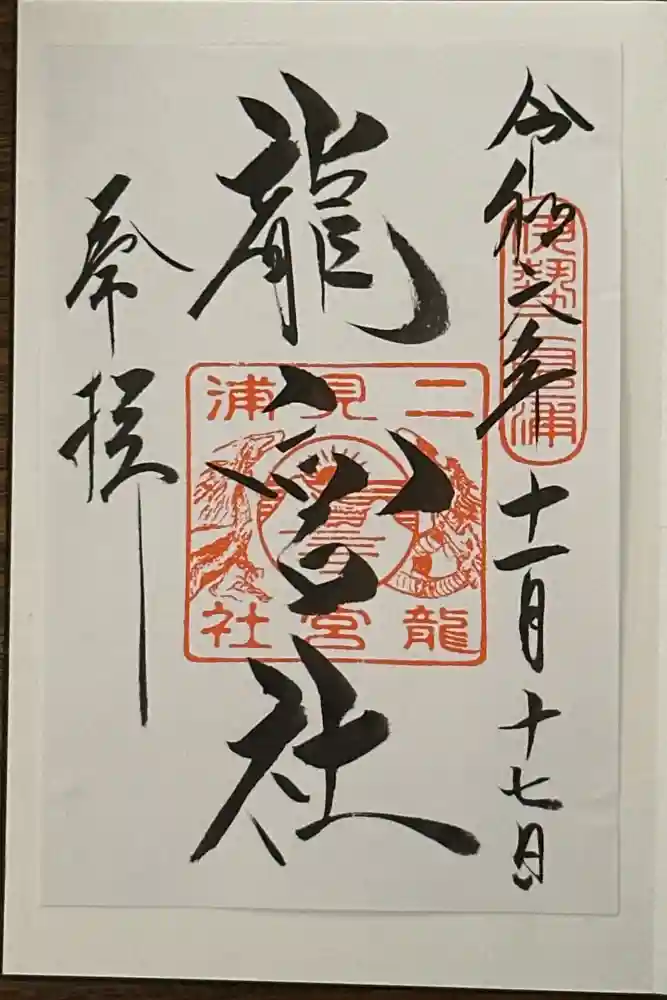 令和二年十一月十七日
伊勢二見浦
龍宮社
二見浦
龍宮社
奉拝